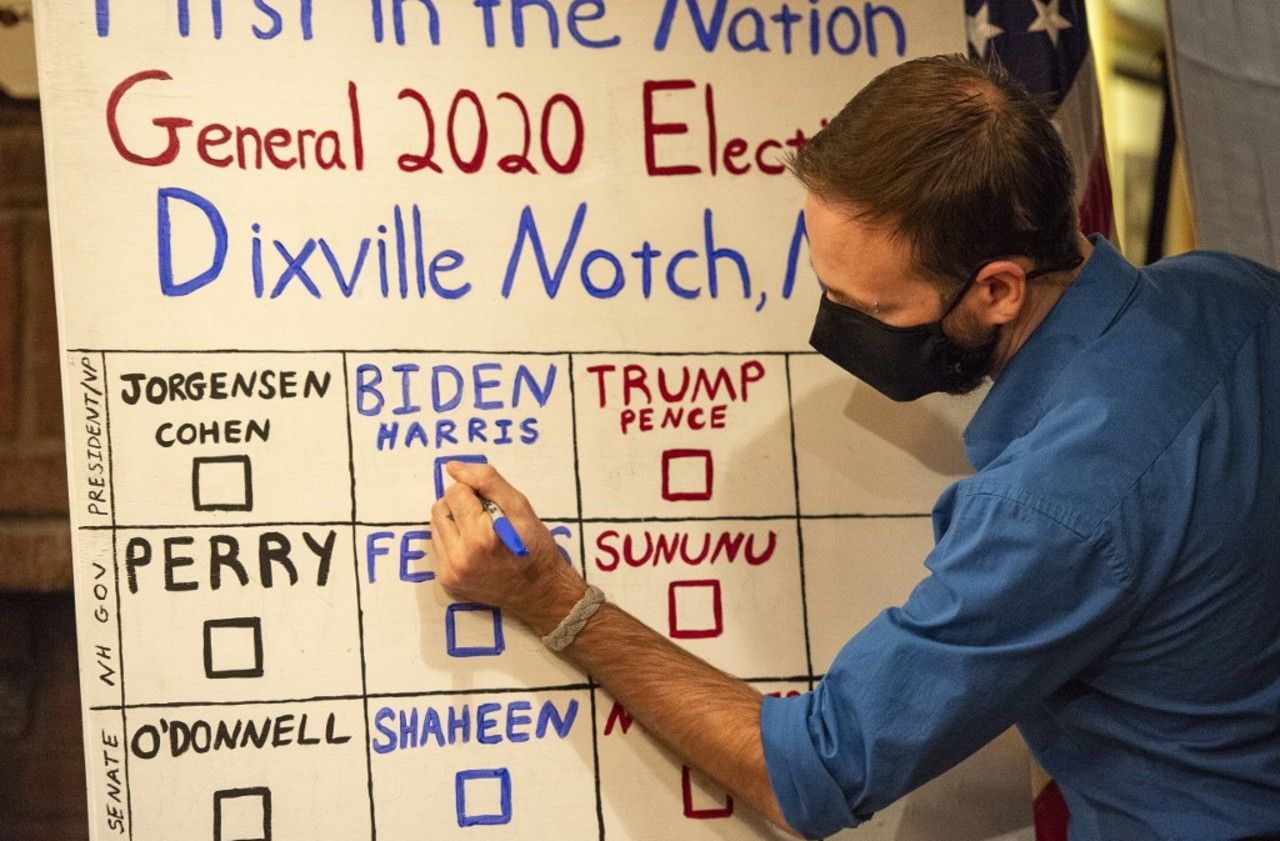 First in the Nation
General 2020
Dixville Notch,
PRESIDENT/VP
JORGENSEN
COHEN
BIDEN
HARRIS
TRUMP
PENCE
NH GOV
PERRY
SUNUNU
SENATE
O'DONNELL
SHAHEEN